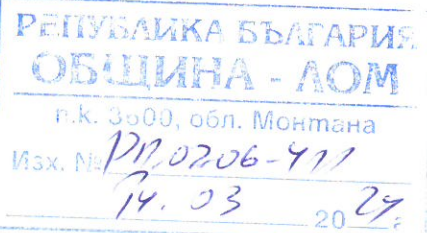 РЕПУБЛИКА БЪЛГАРИЯ
ОБЩИНА - ЛОМ
п.к. 3600, обл. Монтана
Изх. №
14. 03 20 24 г.